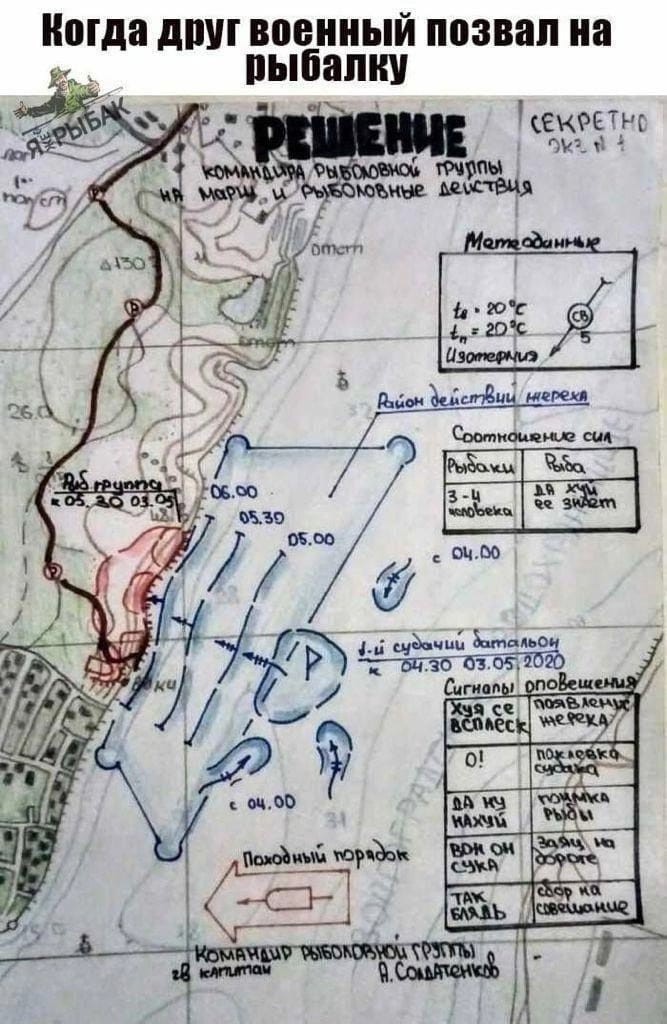 Когда друг военный позвал на
рыбалку
Я ЖЕ РЫБАК
СЕКРЕТНО
ЭКЗ № 1
РЕШЕНИЕ
КОМАНДИРА РЫБОЛОВНОЙ ГРУППЫ
НА МАРШ И РЫБОЛОВНЫЕ ДЕЙСТВИЯ
Отст
Δ130
Метеоданные
tв = 20°С
tп = 20°С
Изотермия
СВ
5
Район действий жереха
Соотношение сил
Рыбаки Рыба
3-4 человека
ДА ХУЙ ЕЕ ЗНАЕТ
Рыб.группа
к 05.30 03.05
06.00
05.30
05.00
с 04.00
1-й судачий батальон
к 04.30 03.05 2020
Р
Сигналы оповещения
ХУЯ СЕ ВСПЛЕСК
появление жереха
О!
поклевка судака
ДА НУ НАХУЙ
поимка рыбы
ВОН ОН СУКА
Заяц на дороге
ТАК БЛЯДЬ
сбор на совещание
с 04.00
31
Походный порядок
КОМАНДИР РЫБОЛОВНОЙ ГРУППЫ
гв капитан А.Солдатенков